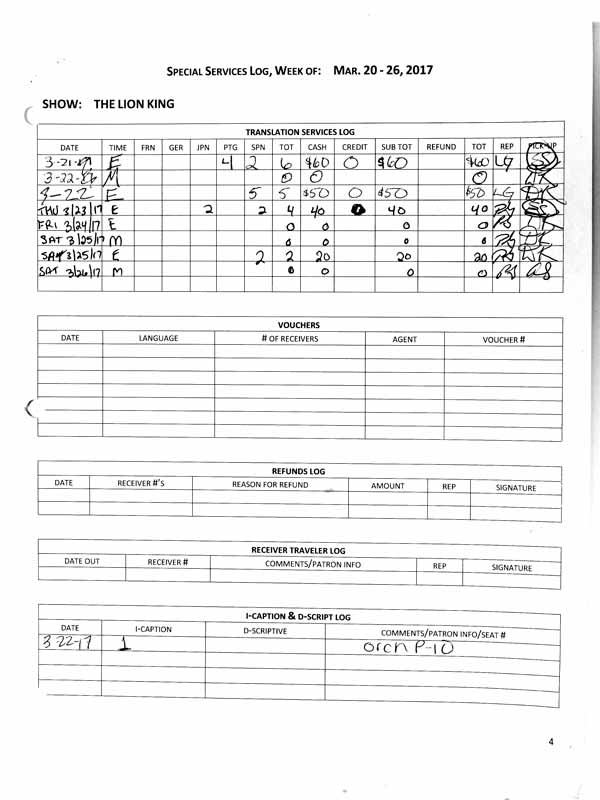 SPECIAL SERVICES LOG, WEEK OF: MAR. 20 - 26, 2017
SHOW: THE LION KING
TRANSLATION SERVICES LOG
DATE TIME FRN GER JPN PTG SPN TOT CASH CREDIT SUB TOT REFUND TOT REP PICK-UP
3-21-17 E 4 2 6 $60 0 $60 $60 LG SS
3-22-16 M 0 0 0
3-22 E 5 5 $50 0 $50 $50 LG
THU 3/23/17 E 2 2 4 40 0 40 40 SS
FRI 3/24/17 E 0 0 0 0
SAT 3/25/17 M 0 0 0 0
SAT 3/25/17 E 2 2 20 20 20
SAT 3/26/17 M 0 0 0 0
VOUCHERS
DATE LANGUAGE # OF RECEIVERS AGENT VOUCHER #
REFUNDS LOG
DATE RECEIVER #'S REASON FOR REFUND AMOUNT REP SIGNATURE
RECEIVER TRAVELER LOG
DATE OUT RECEIVER # COMMENTS/PATRON INFO REP SIGNATURE
I-CAPTION & D-SCRIPT LOG
DATE I-CAPTION D-SCRIPTIVE COMMENTS/PATRON INFO/SEAT #
3-22-17 1 orch P-10
4